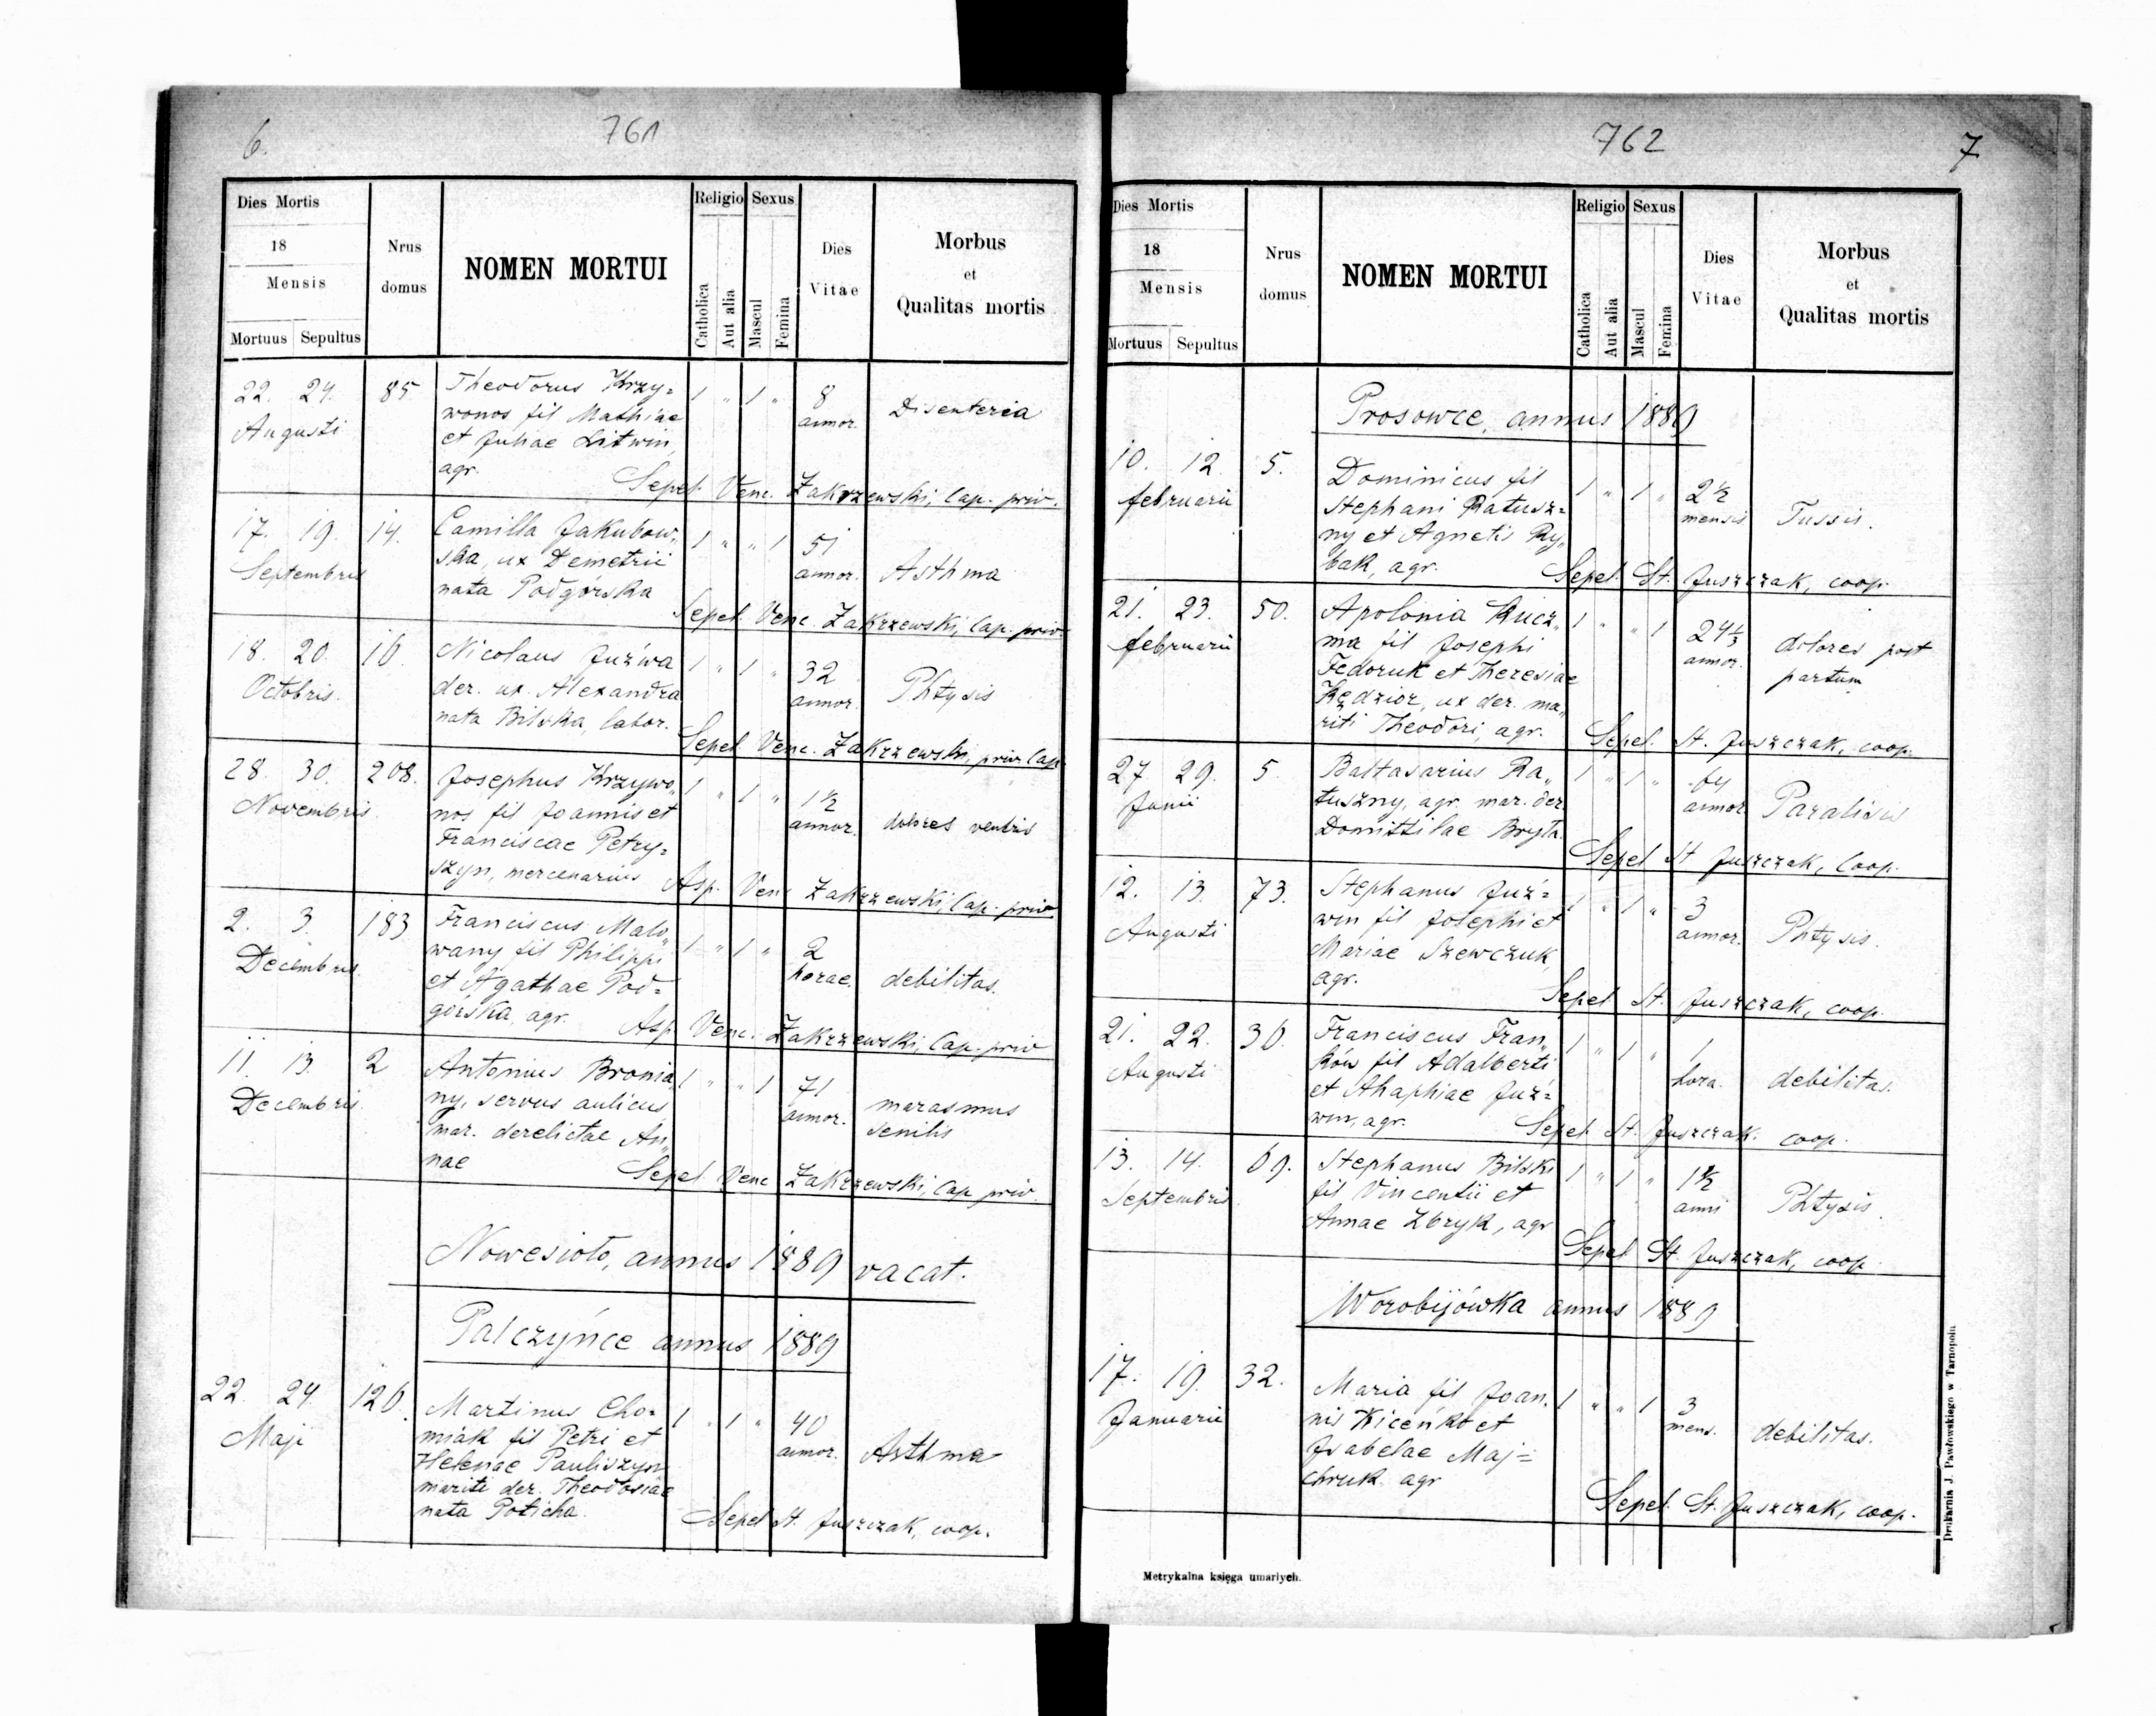 6.
761
Dies Mortis
18
Mensis
Mortuus Sepultus
Nrus
domus
NOMEN MORTUI
Religio Sexus
Catholica
Aut alia
Mascul
Femina
Dies
Vitae
Morbus
et
Qualitas mortis
22. 24. 85 Theodorus Krzy=
Augusti wonos fil Mathiae
et Juliae Litwin,
agr.
1 " 1 " 8
annor. Disenteria
Sepel. Venc. Zakrzewski, Cap. priv.
17. 19. 14. Camilla Jakubow„
Septembris ska, ux Demetrii
nata Podgórska
1 " " 1 51
annor. Asthma
Sepel. Venc. Zakrzewski, Cap. priv.
18. 20. 16. Nicolaus Juźwa
Octobris. der. ux. Alexandra
nata Bilska, labor.
1 " 1 " 32
annor. Phtysis
Sepel Venc. Zakrzewski, priv. Cap.
28. 30. 208. Josephus Krzywo„
Novembris. nos fil Joannis et
Franciscae Petry=
szyn, mercenarius
1 " 1 " 1½
annor. dolores ventris
Asp. Venc Zakrzewski, Cap. priv
2. 3. 183 Franciscus Malo„
Decembris. wany fil Philippi
et Agathae Pod=
górska, agr.
1 " 1 " 2
horae. debilitas.
Asp. Venc. Zakrzewski, Cap. priv
11. 13. 2 Antonius Bronia„
Decembris. ny, servus aulicus
mar. derelictae An„
nae
1 " " 1 71
annor. marasmus
senilis
Sepel Venc Zakrzewski, Cap. priv.
Nowesioło, annus 1889 vacat.
Palczyńce annus 1889
22. 24. 126. Martinus Cho=
Maji miak fil Petri et
Helenae Pauliszyn
mariti der. Theodosiae
nata Poticha.
1 " 1 " 40
annor. Asthma
Sepel St. Juszczak, coop.
762
7
Dies Mortis
18
Mensis
Mortuus Sepultus
Nrus
domus
NOMEN MORTUI
Religio Sexus
Catholica
Aut alia
Mascul
Femina
Dies
Vitae
Morbus
et
Qualitas mortis
Prosowce, annus 1889
10. 12. 5. Dominicus fil
februarii Stephani Ratusz=
ny et Agnetis Ry„
bak, agr.
1 " 1 " 2½
mensis Tussis.
Sepel. St. Juszczak, coop.
21. 23. 50. Apolonia Kucz„
februarii ma fil Josephi
Fedoruk et Theresiae
Kędzior, ux der. ma„
riti Theodori, agr.
1 " " 1 24⅓
annor. dolores post
partum
Sepel. St. Juszczak, coop.
27 29. 5. Baltasarius Ra„
Junii tuszny, agr. mar. der.
Domittilae Bryła.
1 " 1 " 64
annor. Paralisis
Sepel St Juszczak, Coop.
12. 13. 73. Stephanus Juź=
Augusti win fil Josephi et
Mariae Szewczuk,
agr.
1 " 1 " 3
annor. Phtysis.
Sepel St. Juszczak, coop.
21. 22. 30. Franciscus Fran„
Augusti ków fil Adalberti
et Ahaphiae Juź=
win, agr.
1 " 1 " 1
hora. debilitas.
Sepel St. Juszczak. coop.
13. 14. 69. Stephanus Bilski
Septembris. fil Vincentii et
Annae Zbryk, agr
1 " 1 " 1½
anni Phtysis.
Sepel St. Juszczak, coop.
Worobijówka annus 1889
17. 19. 32. Maria fil Joan.
Januarii nis Kiceńko et
Isabelae Maj=
chruk. agr
1 " " 1 3
mens. debilitas.
Sepel. St. Juszczak, coop.
Metrykalna księga umarłych.
Drukarnia J. Pawłowskiego w Tarnopolu